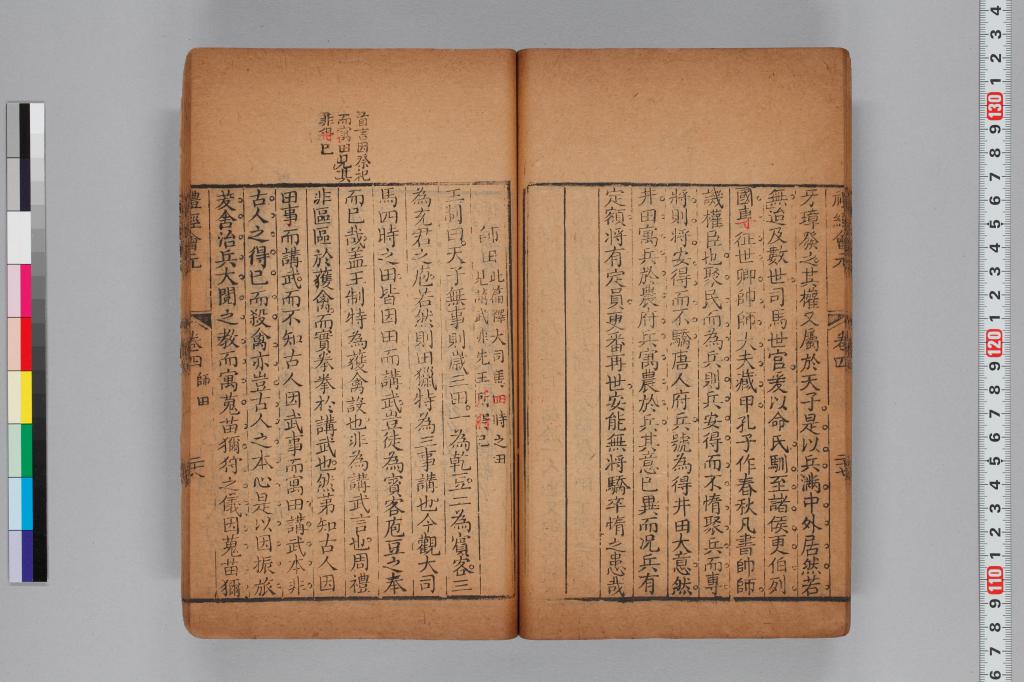 牙璋發之其權又屬於天子是以兵滿中外居然若
無迨及數世司馬世官爰以命氏馴至諸侯更伯列
國專征世卿帥師大夫藏甲孔子作春秋凡書帥師
譏權臣也聚民而為兵則兵安得而不惰聚兵而專
將則將安得而不驕唐人府兵號為得井田大意然
井田寓兵於農府兵寓農於兵其意已異而況兵有
定額將有定員更番再世安能無將驕卒惰之患哉
禮經會元
卷四
師田
此篇釋大司馬四時之田
見講武非先王所得已
王制曰天子無事則歲三田一為乾豆二為賓客三
為充君之庖若然則田獵特為三事講也今觀大司
馬四時之田皆因田而講武豈徒為賓客庖豆之奉
而已哉蓋王制特為獲禽設也非為講武言也周禮
非區區於獲禽而實拳拳於講武也然苐知古人因
田事而講武而不知古人因武事而寓田講武本非
古人之得已而殺禽亦豈古人之本心是以因振旅
茇舍治兵大閱之教而寓蒐苗獮狩之儀因蒐苗獮
首言因祭祀
而寓田見其
非得已
禮經會元
卷四
師田